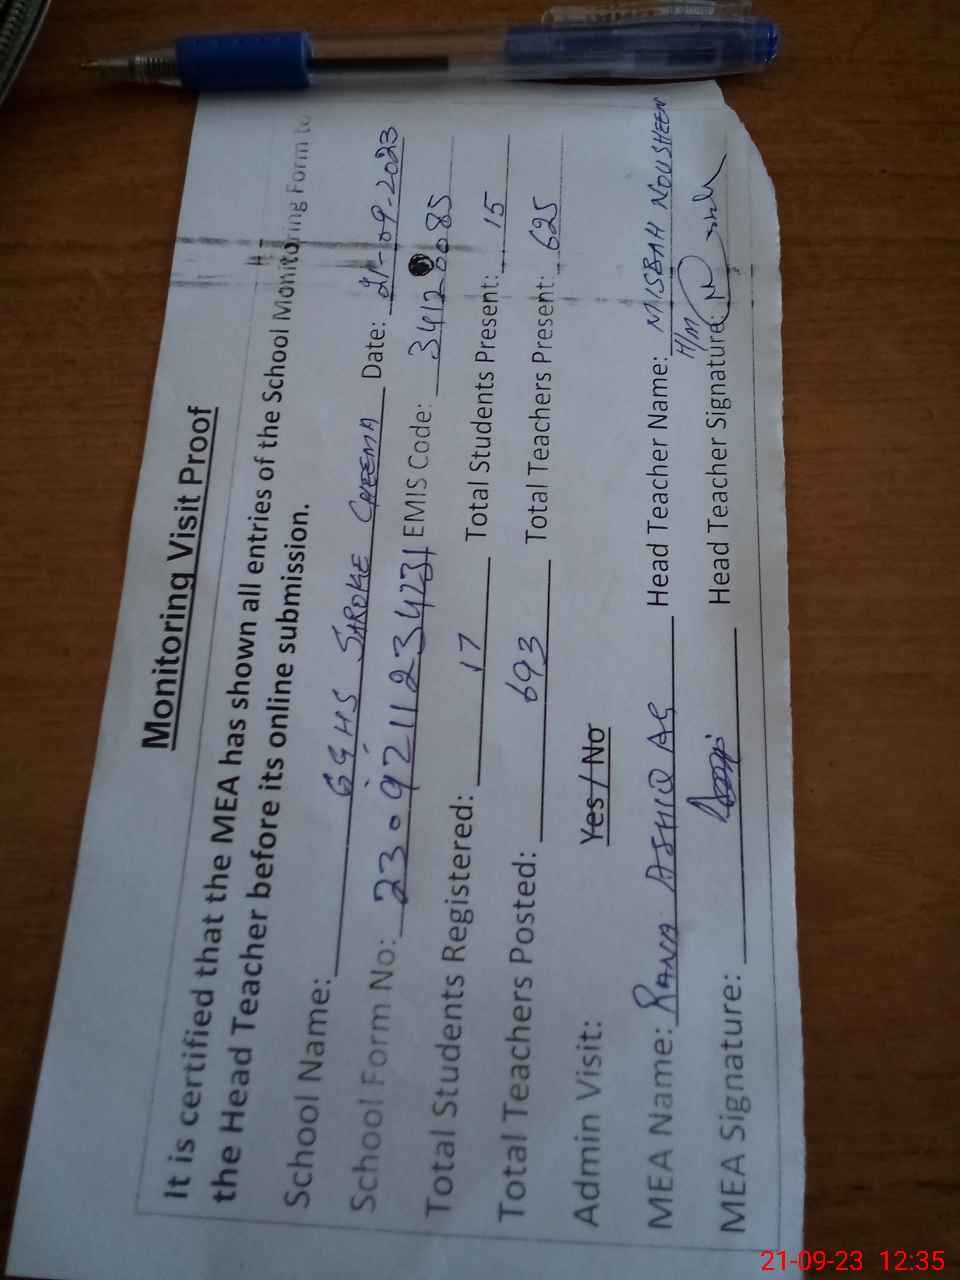 Monitoring Visit Proof
It is certified that the MEA has shown all entries of the School Monitoring Form to
the Head Teacher before its online submission.
School Name: GGHS SAROKE CHEEMA Date: 21-09-2023
School Form No: 23092112343231 EMIS Code: 34120085
Total Students Registered: 17 Total Students Present: 15
Total Teachers Posted: 693 Total Teachers Present: 625
Admin Visit: Yes / No
MEA Name: RANA ASHIQ Head Teacher Name: MISBAH NOUSHEEN
H/M
MEA Signature: Head Teacher Signature:
21-09-23 12:35